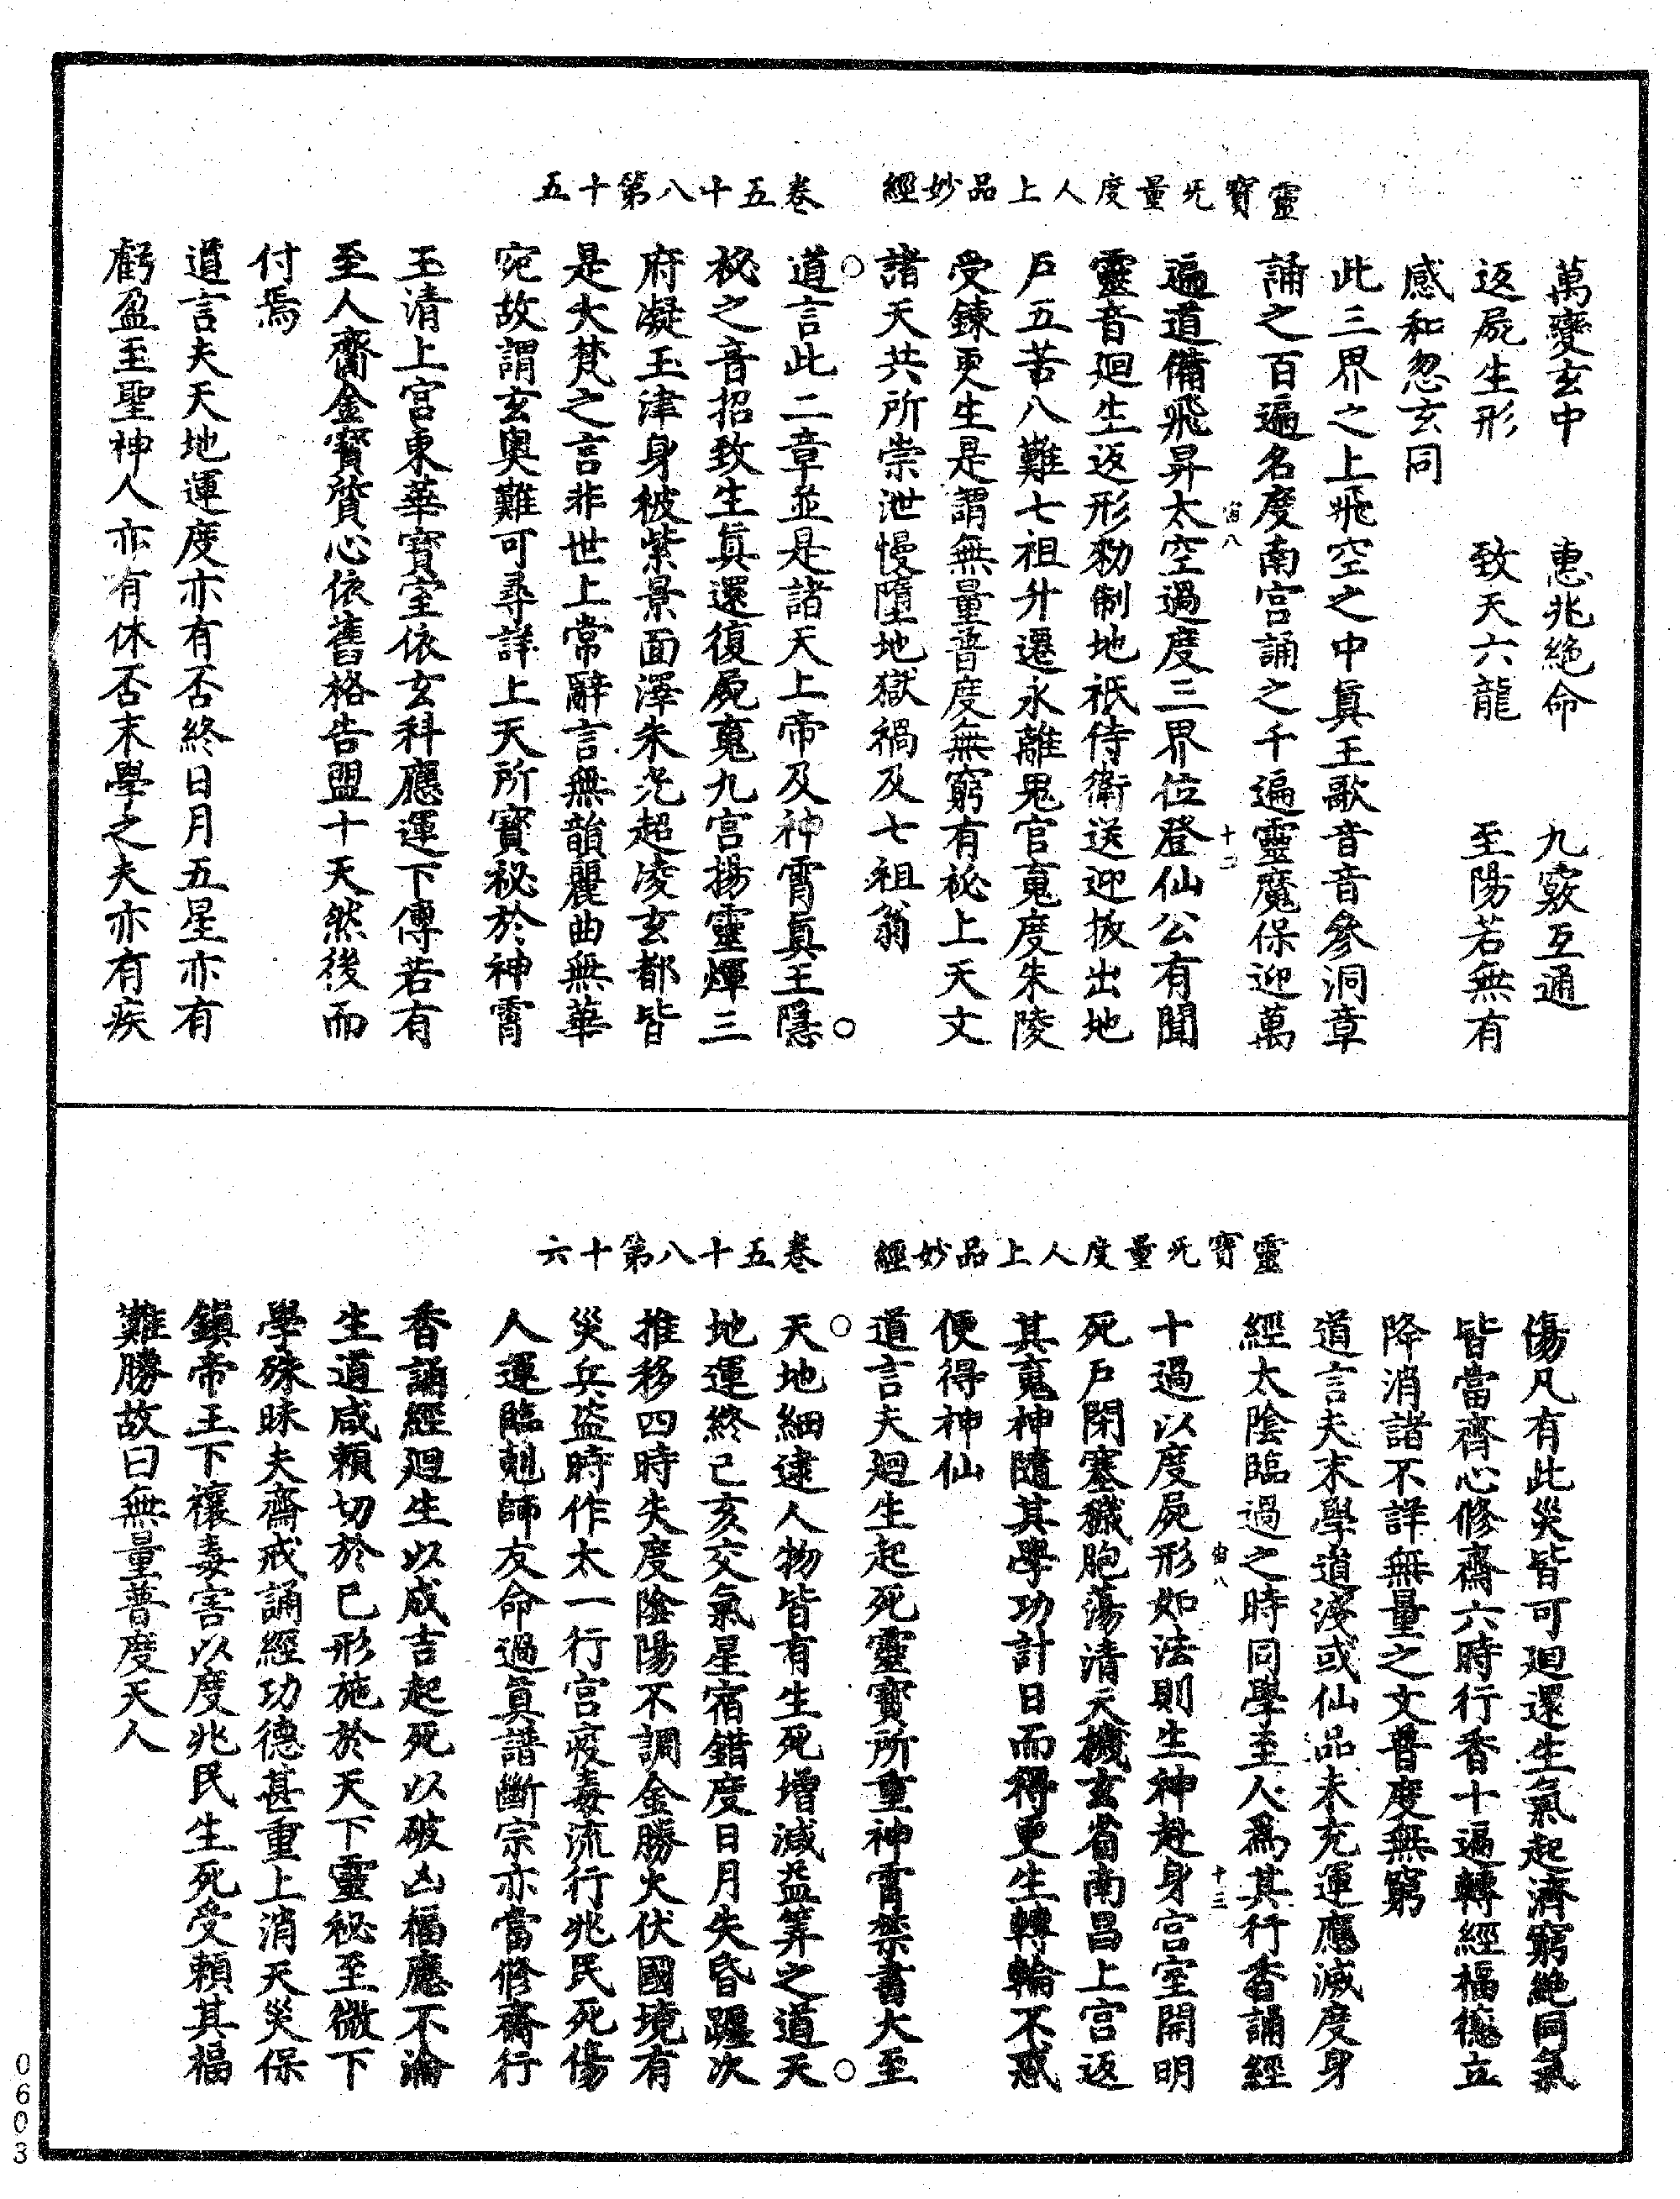 靈寶无量度人上品妙經　卷五十八第十五
萬變玄中　惠兆絕命　九竅互通
返屍生形　致天六龍　至陽若無有
感和忽玄同
此三界之上飛空之中眞王歌音音參洞章
誦之百遍名度南宮誦之千遍靈魔保迎萬
遍道備飛昇太空過度三界位登仙公有聞
宙八　十二
靈音迴生返形勑制地祇侍衛送迎拔出地
戶五苦八難七祖升遷永離鬼官䰟度朱陵
受鍊更生是謂無量普度無窮有祕上天文
諸天共所崇泄慢墮地獄禍及七祖翁
道言此二章並是諸天上帝及神霄眞王隱
祕之音招致生眞還復屍䰟九宮揚靈煇三
府凝玉津身被紫景面澤朱光超凌玄都皆
是大梵之言非世上常辭言無韻麗曲無華
宛故謂玄奧難可尋詳上天所寳祕於神霄
玉清上宮東華寶室依玄科應運下傳若有
至人齎金寶質心依舊格告盟十天然後而
付焉
道言夫天地運度亦有否終日月五星亦有
虧盈至聖神人亦有休否末學之夫亦有疾
靈寶无量度人上品妙經　卷五十八第十六
傷凡有此災皆可迴還生氣起濟窮絕同氣
皆當齊心修齋六時行香十遍轉經福德立
降消諸不詳無量之文普度無窮
道言夫末學道淺或仙品未充運應滅度身
經太陰臨過之時同學至人爲其行香誦經
十過以度屍形如法則生神赴身宮室開明
宙八　十三
死戶閉塞穢胞蕩清天機玄省南昌上宮返
其䰟神隨其學功計日而得更生轉輪不惑
便得神仙
道言夫迴生起死靈寶所重神霄禁書大至
天地細逮人物皆有生死增減益筭之道天
地運終己亥交氣星宿錯度日月失昏躔次
推移四時失度陰陽不調金勝火伏國境有
災兵盜時作太一行宮疫毒流行兆民死傷
人運臨剋師友命過眞譜斷宗亦當修齋行
香誦經迴生以成吉起死以破凶福應不淪
生道咸賴切於己形施於天下靈祕至微下
學殊昧夫齋戒誦經功德甚重上消天災保
鎭帝王下禳毒害以度兆民生死受賴其福
難勝故曰無量普度天人
0603